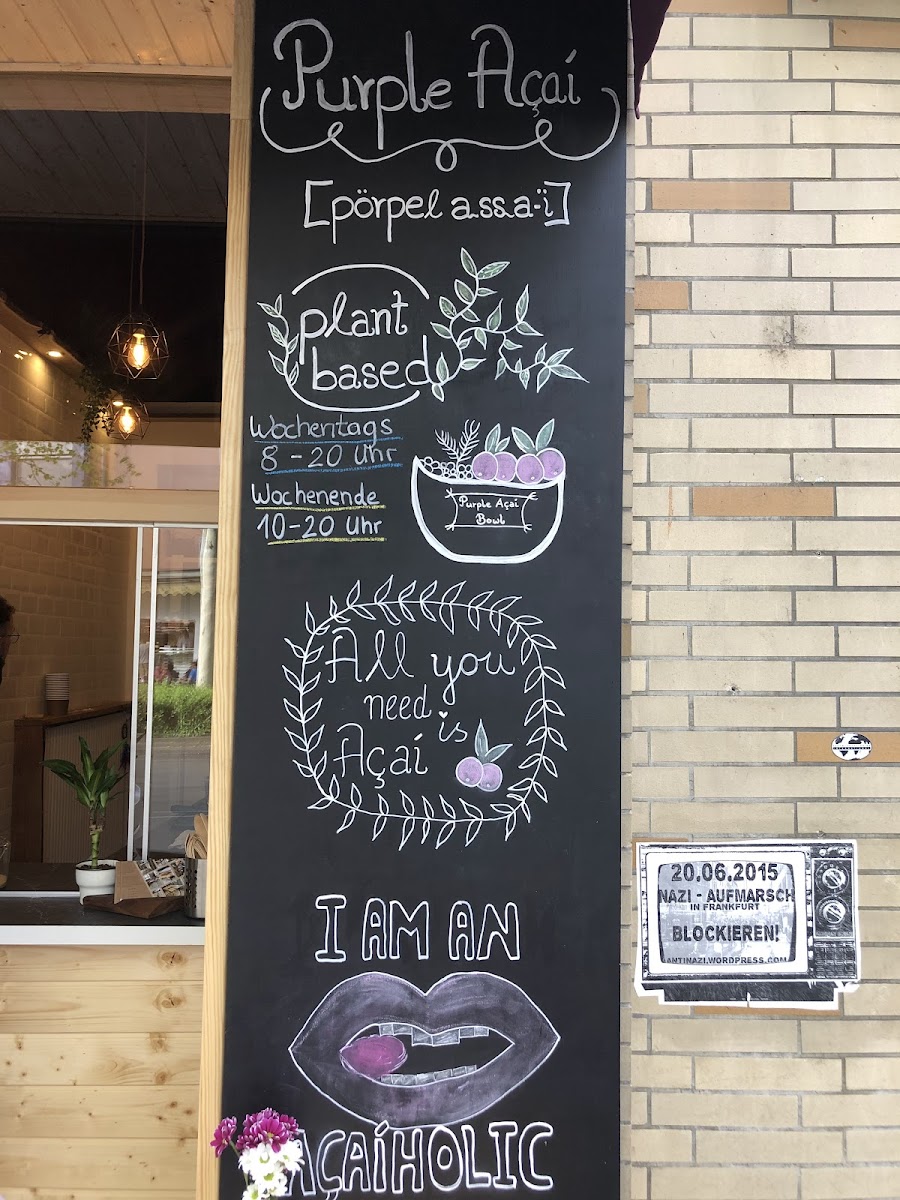 Purple Açaí
[pörpel assa-ï]
plant
based
Wochentags
8-20 Uhr
Wochenende
10-20 Uhr
Purple Açaí
Bowl
All you
need is
Açaí
I AM AN
AÇAÍHOLIC
20.06.2015
NAZI - AUFMARSCH
IN FRANKFURT
BLOCKIEREN!
ANTINAZI.WORDPRESS.COM